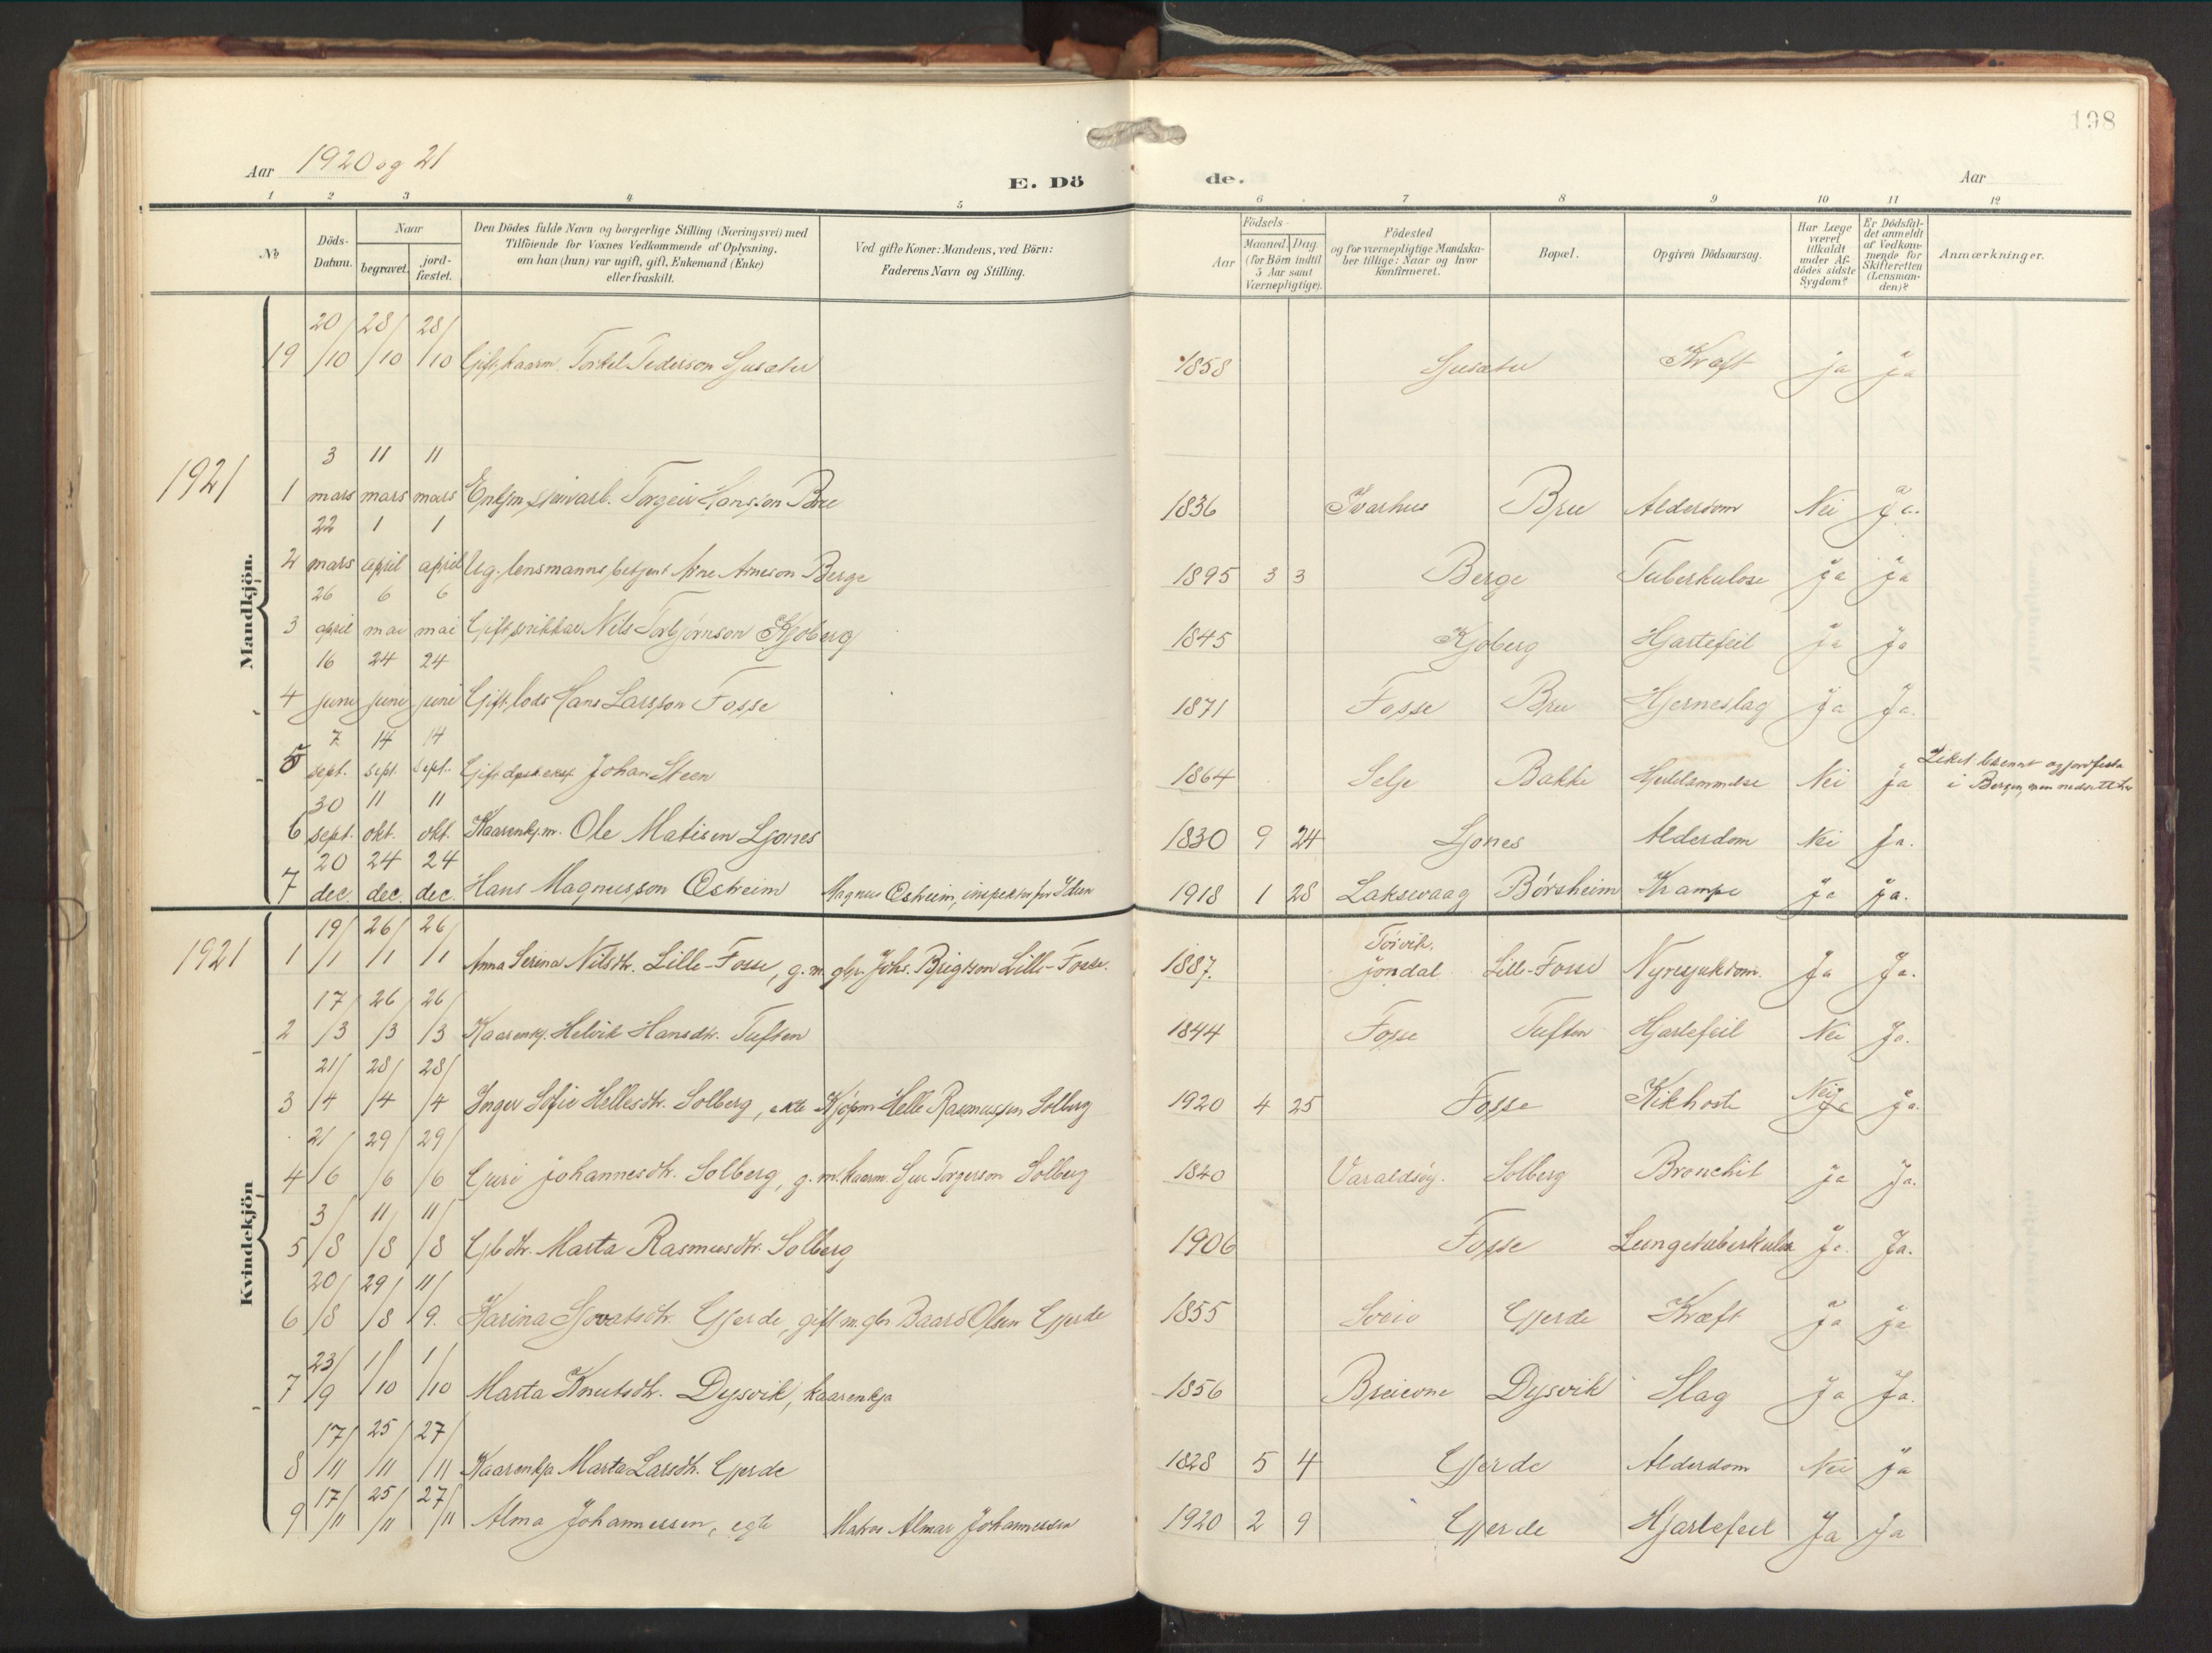 198
Aar 1920 og 21
E. Dö
de.
Aar
1 2 3 4 5 6 7 8 9 10 11 12
No
Döds-Datum.
Naar
begravet.
jord-fæstet.
Den Dödes fulde Navn og borgerlige Stilling (Næringsvei) med
Tilföiende for Voxnes Vedkommende af Oplysning,
om han (hun) var ugift, gift, Enkemand (Enke)
eller fraskilt.
Ved gifte Koner: Mandens, ved Börn:
Faderens Navn og Stilling.
Födsels-
Aar
Maaned. Dag.
(for Börn indtil
5 Aar samt
Værnepligtige).
Födested
og for værnepligtige Mandska-
ber tillige: Naar og hvor
Konfirmeret.
Bopæl.
Opgiven Dödsaarsag.
Har Læge
været
tilkaldt
under Af-
dödes sidste
Sygdom?
Er Dödsfal-
det anmeldt
af Vedkom-
mende for
Skifteretten
(Lensman-
den)?
Anmærkninger.
Mandkjön.
19 20/10 28/10 28/10 Gift, kaarm. Torkel Pederson 1858 Kræft ja ja
1921
1 3 mars 11 mars 11 mars Torgeir Hansson Bru 1836 Ivarhus Bru Alderdom Nei Ja.
2 22 mars 1 april 1 april Ug. lensmannsbetjent Arne Arneson Berge 1895 3 3 Berge Tuberkulose Ja Ja
3 26 april 6 mai 6 mai Gift, snikkar Nils Torbjørnson Kjoberg 1845 Kjoberg Hjartefeil Ja Ja
4 16 juni 24 juni 24 juni Gift, lods Hans Larsson Fosse 1871 Fosse Bru Hjerneslag Ja Ja.
5 7 sept. 14 sept. 14 sept. Gift Johan Steen 1864 Selje Bakke Nei ja Liket brennt og jordfesta
i Bergen, men nedsett her
6 30 sept. 11 okt. 11 okt. Kaarenkj.m. Ole Matisen Ljones 1830 9 24 Ljones Alderdom Nei Ja.
7 20 dec. 24 dec. 24 dec. Hans Magnusson Østreim Magnus Østreim, 1918 1 28 Laksevaag Børsheim Krampe Ja Ja.
Kvindekjön
1921
1 19/1 26/1 26/1 Anna Serina Nilsdtr. Lille-Fosse, g. m. gbr. Johs. Brigtson Lille-Fosse. 1887. Jondal Lille-Fosse Nyresjukdom. Ja Ja.
2 17/3 26/3 26/3 Kaarenkj. Helvik Hansdtr. Tuften 1844 Fosse Tuften Hjartefeil Nei Ja.
3 21/4 28/4 28/4 Inger Sofie Hellesdtr. Solberg, ekte Kjøpm. Helle Rasmussen Solberg 1920 4 25 Fosse Kikhoste Nei Ja.
4 21/6 29/6 29/6 Guri Johannesdtr. Solberg, g. m. kaarm. Sjur Torgerson Solberg 1840 Varaldsøy. Solberg Bronchit Ja Ja.
5 3/8 11/8 11/8 Gbdtr. Marta Rasmusdtr. Solberg 1906 Fosse Lungetuberkulose Ja. Ja.
6 20/8 29/8 11/9. Karina Sjovatsdtr. Gjerde, gift m. gbr Baard Olsen Gjerde 1855 Sveio Gjerde Kræft Ja Ja
7 23/9 1/10 1/10 Marta Knutsdtr. Dysvik, kaarenkja 1856 Dysvik Slag Ja Ja.
8 17/11 25/11 27/11 Kaarenkja Marta Larsdtr. Gjerde 1828 5 4 Gjerde Alderdom Nei Ja
9 17/11 25/11 27/11 Alma Johannessen, egte Matros Almar Johannessen 1920 2 9 Gjerde Hjartefeil Ja Ja